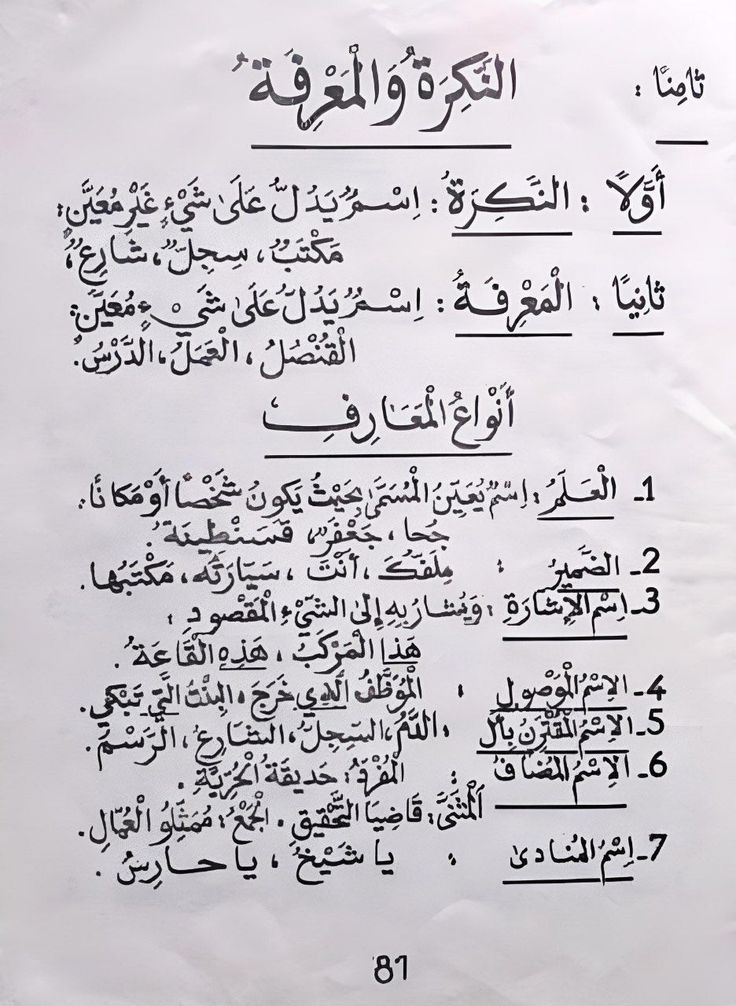 ثامِنًا :
النَّكِرَةُ وَالْمَعْرِفَةُ
أَوَّلًا : النَّكِرَةُ : اِسْمٌ يَدُلُّ عَلَىٰ شَيْءٍ غَيْرِ مُعَيَّنٍ:
مَكْتَبٌ، سِجِلٌّ، شارِعٌ،
ثانِيًا : الْمَعْرِفَةُ : اِسْمٌ يَدُلُّ عَلَىٰ شَيْءٍ مُعَيَّنٍ:
الْقُنْصُلُ ، الْعَمَلُ ، الدَّرْسُ.
أَنْوَاعُ الْمَعَارِفِ
1ـ الْعَلَمُ : اِسْمٌ يُعَيِّنُ الْمُسَمَّىٰ بِحَيْثُ يَكُونُ شَخْصًا أَوْ مَكانًا:
جُحا ، جَعْفَرٌ، قَسَنْطِينَةُ.
2ـ الضَّمِيرُ : مِلَفُّكَ ، أَنْتَ ، سَيّارَتُه، مَكْتَبُها.
3ـ اِسْمُ الْإِشارَةِ : وَيُشارُ بِهِ إِلىَ الشَّيْءِ الْمَقْصُودِ :
هَذا الْمَرْكَبُ ، هَذِهِ الْقَاعَةُ.
4ـ الِاسْمُ الْمَوْصُولِ : الْمُوَظَّفُ الَّذِي خَرَجَ ، الْبِنْتُ الَّتِي تَبْكِي.
5ـ الِاسْمُ الْمُقْتَرِنُ بِأَلْ : الدَّمُ، السِّجِلُّ، الشّارِعُ، الرَّسْمُ.
6ـ الِاسْمُ الْمُضَافُ : الْمُفْرَدُ: حَدِيقَةُ الْحُرِّيَّةِ .
اَلْمُثَنَّىٰ: قَاضِيَا التَّحْقِيقِ . الْجَمْعُ: مُمَثِّلُو الْعُمَّالِ.
7ـ اِسْمُ الْمُنادَىٰ : يا شَيْخُ ، يا حارِسُ .
81